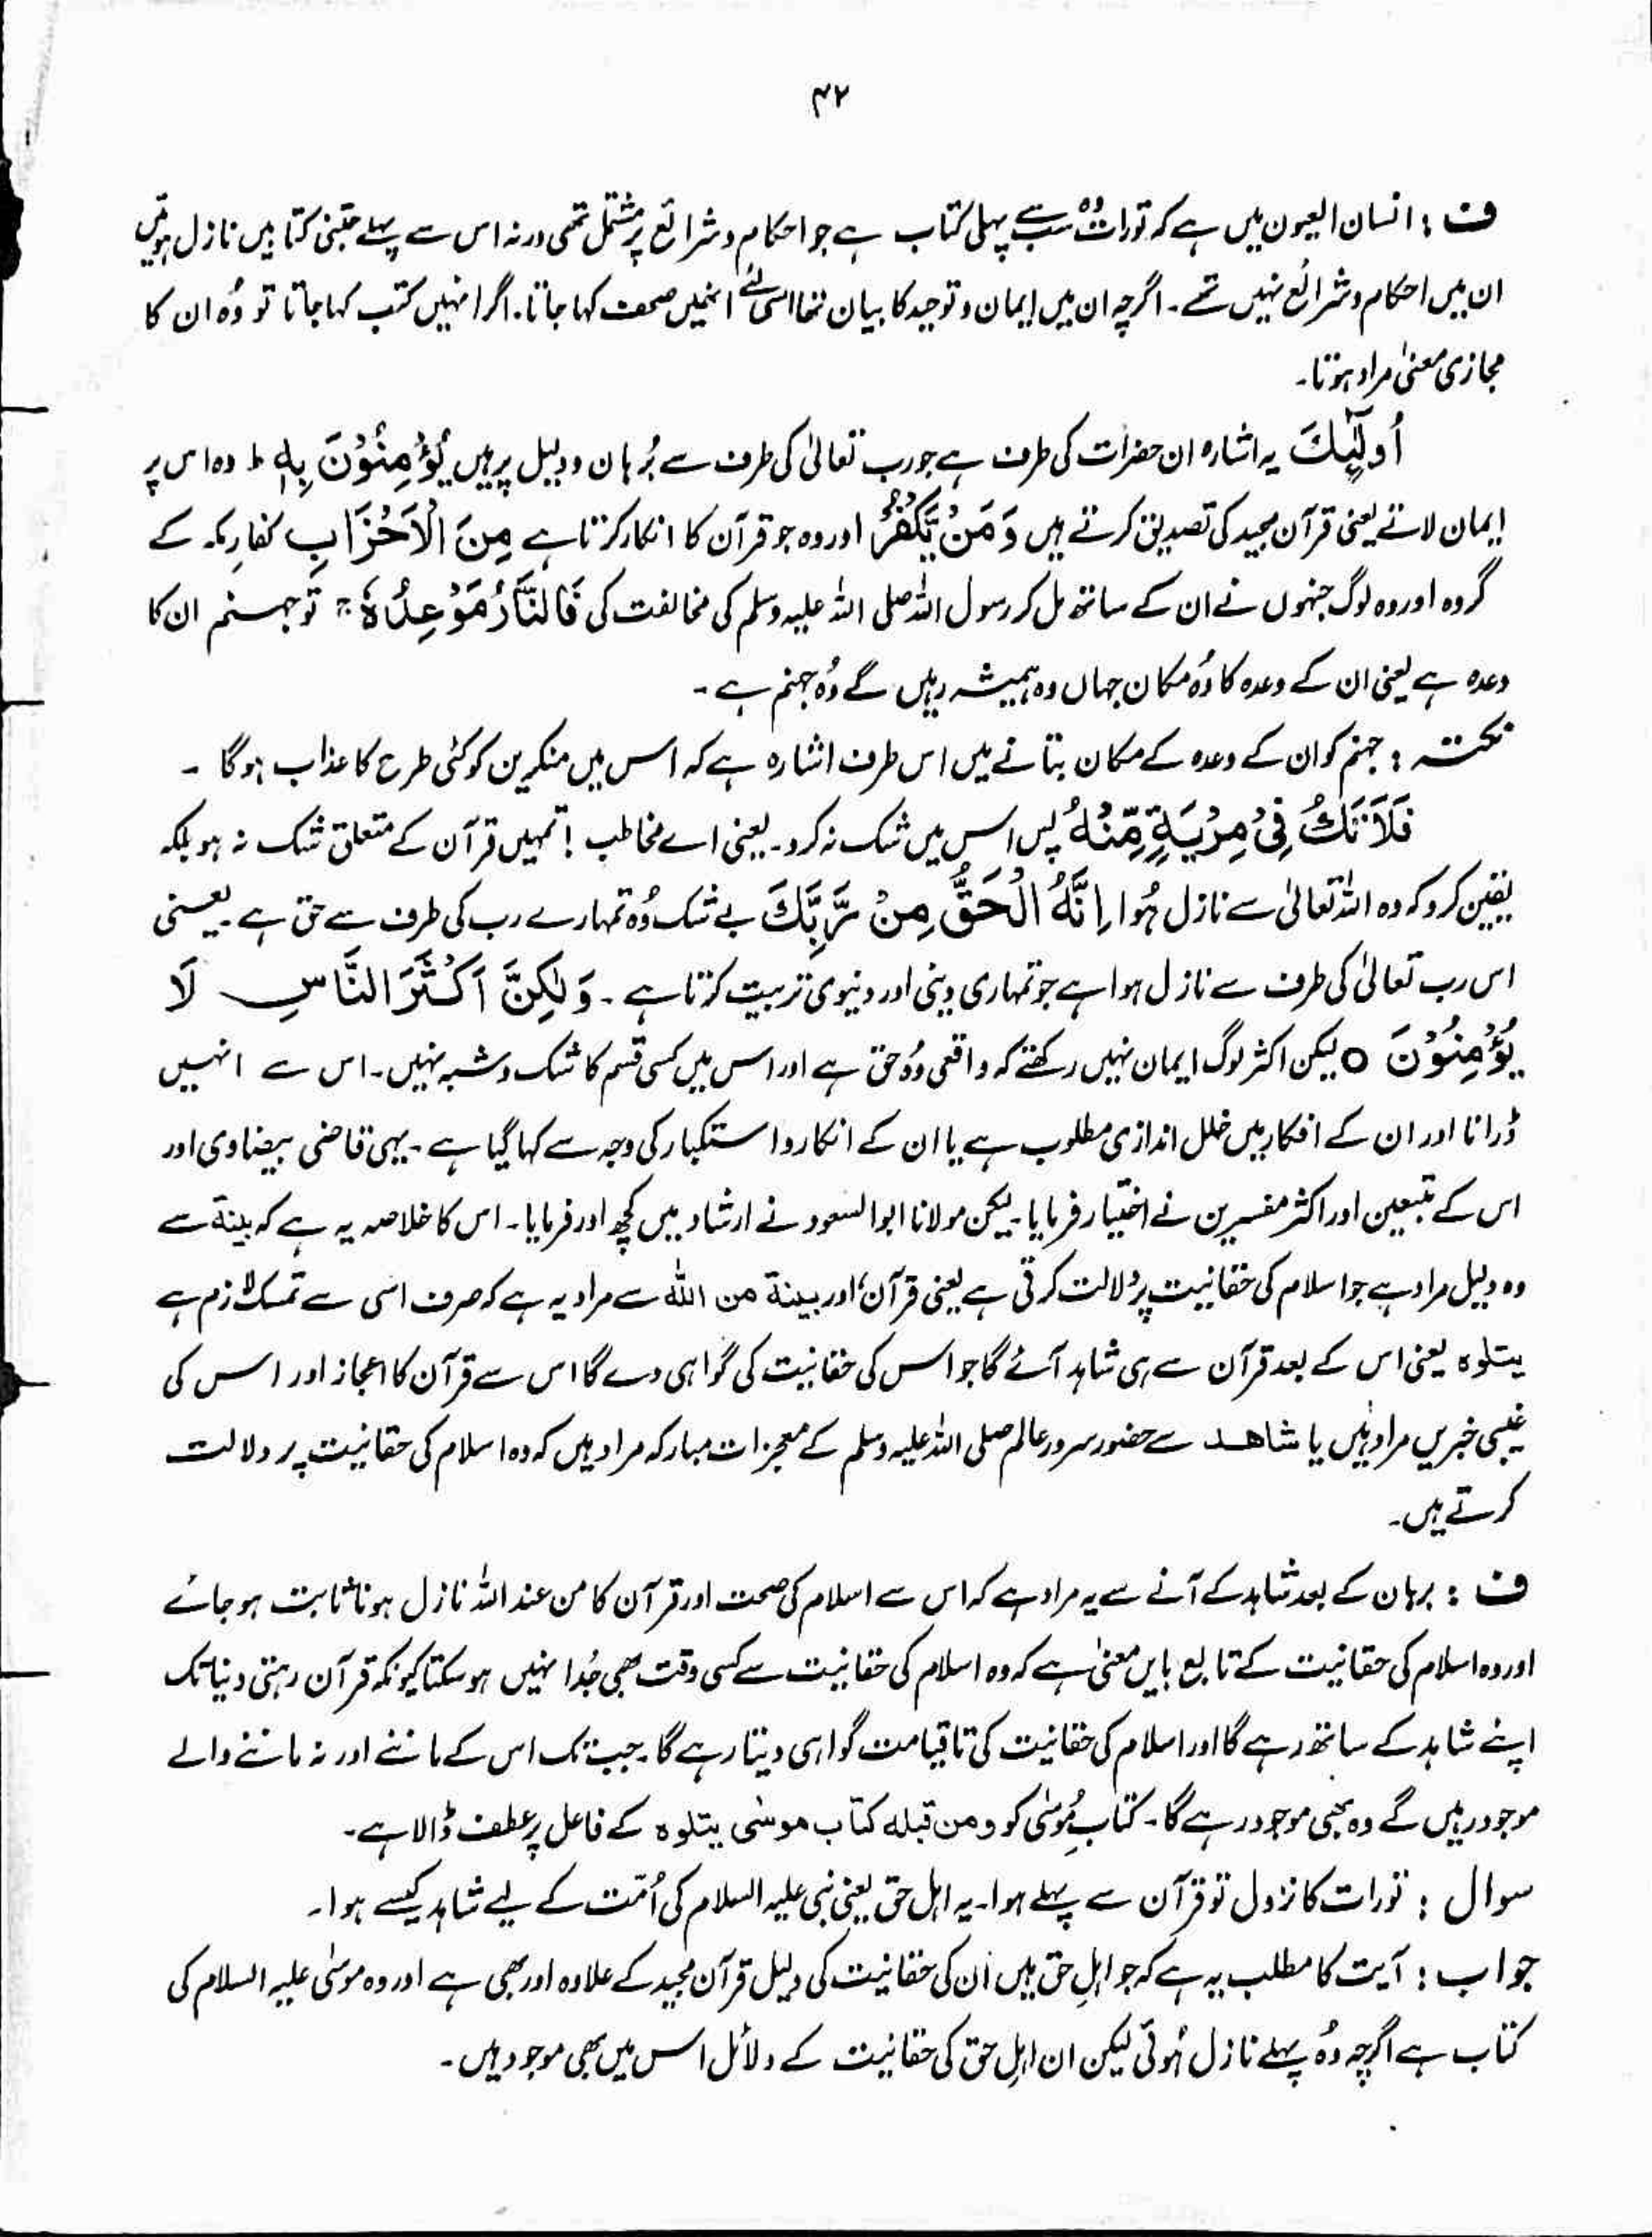 ۴۲
ف : انسان العیون میں ہے کہ تورات وہ سب سے پہلی کتاب ہے جو احکام و شرائع پر مشتمل تھی ورنہ اس سے پہلے جتنی کتابیں نازل ہوئیں
ان میں احکام و شرائع نہیں تھے۔ اگرچہ ان میں ایمان و توحید کا بیان تھا اسی لئے انھیں صحف کہا جاتا۔ اگر انہیں کتب کہا جاتا تو وُہ ان کا
مجازی معنیٰ مراد ہوتا۔
اُولٰٓئِكَ یہ اشارہ ان حضرات کی طرف ہے جو رب تعالیٰ کی طرف سے بُرہان و دلیل پر ہیں یُؤْمِنُوْنَ بِهٖ ط وہ اس پر
ایمان لاتے یعنی قرآن مجید کی تصدیق کرتے ہیں وَمَنْ يَّكْفُرْ اور وہ جو قرآن کا انکار کرتا ہے مِنَ الْاَحْزَابِ کفارِ مکہ کے
گروہ اور وہ لوگ جنہوں نے ان کے ساتھ مل کر رسول اللہ صلی اللہ علیہ وسلم کی مخالفت کی فَالنَّارُ مَوْعِدُهٗ ج تو جہنم ان کا
وعدہ ہے یعنی ان کے وعدہ کا وُہ مکان جہاں وہ ہمیشہ رہیں گے وُہ جہنم ہے۔
نکتہ : جہنم کو ان کے وعدہ کے مکان بتانے میں اس طرف اشارہ ہے کہ اس میں منکرین کو کئی طرح کا عذاب ہوگا ۔
فَلَا تَكُ فِیْ مِرْیَةٍ مِّنْهُ پس اس میں شک نہ کرو۔ یعنی اے مخاطب ! تمہیں قرآن کے متعلق شک نہ ہو بلکہ
یقین کرو کہ وہ اللہ تعالیٰ سے نازل ہُوا اِنَّهُ الْحَقُّ مِنْ رَّبِّكَ بے شک وُہ تمہارے رب کی طرف سے حق ہے۔ یعنی
اس رب تعالیٰ کی طرف سے نازل ہوا ہے جو تمہاری دینی اور دنیوی تربیت کرتا ہے ۔ وَلٰكِنَّ اَكْثَرَ النَّاسِ لَا
یُؤْمِنُوْنَ ○ لیکن اکثر لوگ ایمان نہیں رکھتے کہ واقعی وُہ حق ہے اور اس میں کسی قسم کا شک و شبہ نہیں۔ اس سے انہیں
ڈرانا اور ان کے افکار میں خلل اندازی مطلوب ہے یا ان کے انکار و استکبار کی وجہ سے کہا گیا ہے ۔ یہی قاضی بیضاوی اور
اس کے متبعین اور اکثر مفسرین نے اختیار فرمایا۔ لیکن مولانا ابوالسعود نے ارشاد میں کچھ اور فرمایا۔ اس کا خلاصہ یہ ہے کہ بینۃ سے
وہ دلیل مراد ہے جو اسلام کی حقانیت پر دلالت کرتی ہے یعنی قرآن، اور بینة من الله سے مراد یہ ہے کہ صرف اسی سے تمسک لازم ہے
یتلوہ یعنی اس کے بعد قرآن سے ہی شاہد آئے گا جو اس کی حقانیت کی گواہی دے گا اس سے قرآن کا اعجاز اور اس کی
غیبی خبریں مراد ہیں یا شاھد سے حضور سرور عالم صلی اللہ علیہ وسلم کے معجزات مبارکہ مراد ہیں کہ وہ اسلام کی حقانیت پر دلالت
کرتے ہیں۔
ف : برہان کے بعد شاہد کے آنے سے یہ مراد ہے کہ اس سے اسلام کی صحت اور قرآن کا من عند اللہ نازل ہونا ثابت ہو جائے
اور وہ اسلام کی حقانیت کے تابع بایں معنیٰ ہے کہ وہ اسلام کی حقانیت سے کسی وقت بھی جُدا نہیں ہو سکتا کیونکہ قرآن رہتی دنیا تک
اپنے شاہد کے ساتھ رہے گا اور اسلام کی حقانیت کی تا قیامت گواہی دیتا رہے گا۔ جب تک اس کے ماننے اور نہ ماننے والے
موجود رہیں گے وہ بھی موجود رہے گا۔ کتابِ مُوسٰی کو و من قبله کتاب موسٰی یتلوہ کے فاعل پر عطف ڈالا ہے۔
سوال : تورات کا نزول تو قرآن سے پہلے ہوا۔ یہ اہل حق یعنی نبی علیہ السلام کی اُمّت کے لیے شاہد کیسے ہوا۔
جواب : آیت کا مطلب یہ ہے کہ جو اہلِ حق ہیں اُن کی حقانیت کی دلیل قرآن مجید کے علاوہ اور بھی ہے اور وہ موسٰی علیہ السلام کی
کتاب ہے اگرچہ وُہ پہلے نازل ہُوئی لیکن ان اہلِ حق کی حقانیت کے دلائل اس میں بھی موجود ہیں ۔